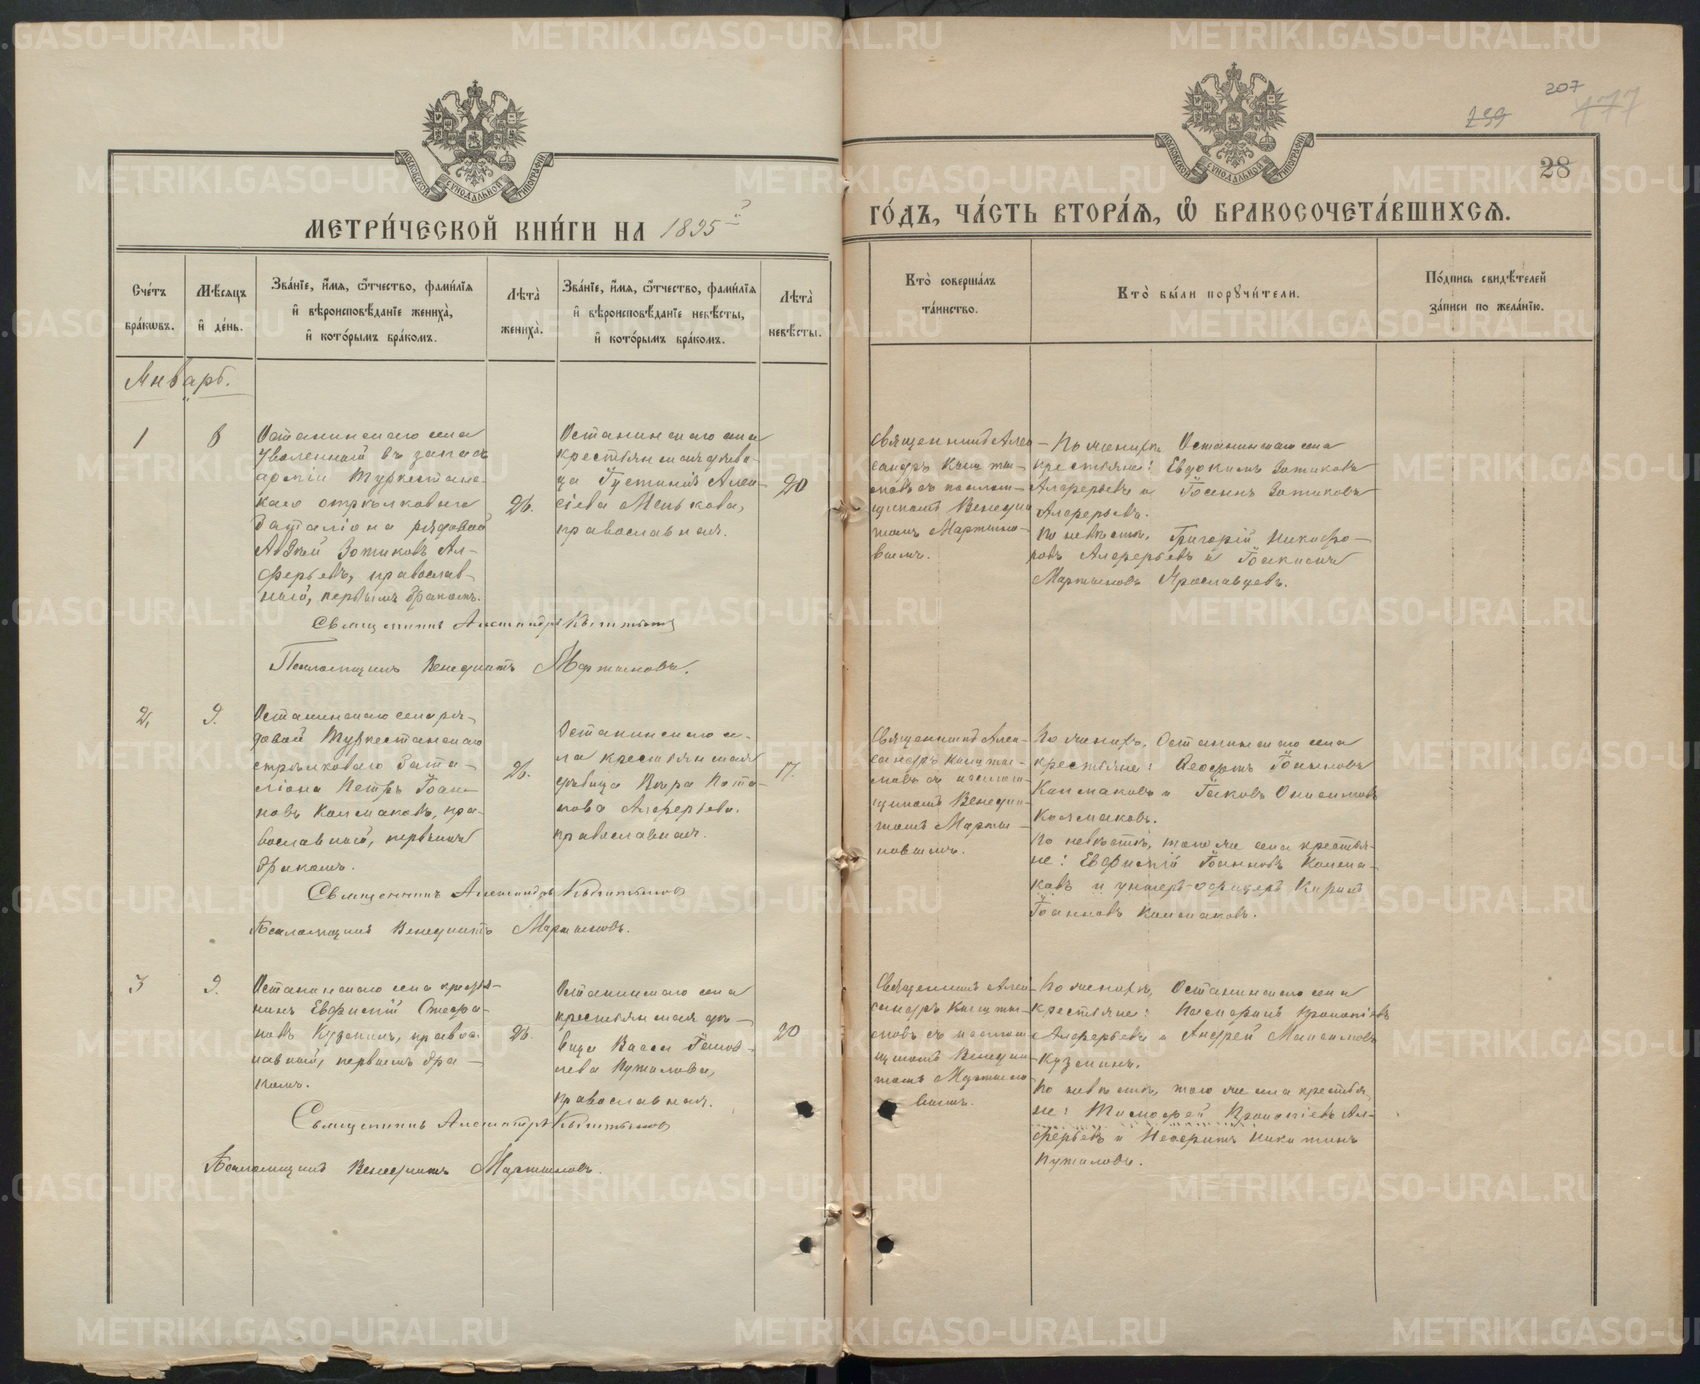 207
239
777
28
МОСКОВСКОЙ СѴНОДАЛЬНОЙ ТИПОГРАФІИ
МОСКОВСКОЙ СѴНОДАЛЬНОЙ ТИПОГРАФІИ
МЕТРИ́ЧЕСКОЙ КНИ́ГИ НА 1895
ГО́ДЪ, ЧА́СТЬ ВТОРА́Ѧ, Ѡ҆ БРАКОСОЧЕТА́ВШИХСѦ.
Сче́тъ
бра́кѡвъ.
Мѣ́сѧцъ
и҆ де́нь.
Зва́нїе, и҆́мѧ, ѻ҆́тчество, фами́лїѧ
и҆ вѣроисповѣ́данїе жениха̀,
и҆ кото́рымъ бра́комъ.
Лѣ́та̀
жениха̀.
Зва́нїе, и҆́мѧ, ѻ҆́тчество, фами́лїѧ
и҆ вѣроисповѣ́данїе невѣ́сты,
и҆ кото́рымъ бра́комъ.
Лѣ́та̀
невѣ́сты.
Кто̀ соверша́лъ
та́инство.
Кто̀ бы́ли порꙋчи́тели.
По́дпись свидѣ́телей
за́писи по жела́нїю.
Январь.
1
8
Останинскаго села
уволенный въ запасъ
арміи Туркестан-
скаго стрѣлковаго
баталіона рядовой
Авдій Зотиковъ Ал-
ферьевъ, православ-
ный, первымъ бракомъ.
26.
Останинскаго села
крестьянская дѣви-
ца Іустинія Алек-
сіева Менькова,
православная.
20
Священникъ Алек-
сандръ Кышты-
мовъ съ псалом-
щикомъ Венедик-
томъ Мартыно-
вымъ.
По женихѣ, Останинскаго села
крестьяне: Евдокимъ Зотиковъ
Алферьевъ и Іосифъ Зотиковъ
Алферьевъ.
По невѣстѣ, Григорій Никифо-
ровъ Алферьевъ и Іоакимъ
Мартыновъ Ярославцевъ.
Священникъ Александръ Кыштымовъ
Псаломщикъ Венедиктъ Мартыновъ.
2.
9.
Останинскаго села ря-
довой Туркестанскаго
стрѣлковаго бата-
ліона Петръ Іоан-
новъ Колмаковъ, пра-
вославный, первымъ
бракомъ.
26.
Останинскаго се-
ла крестьянская
дѣвица Вѣра Пота-
пова Алферьева,
православная.
17.
Священникъ Алек-
сандръ Кышты-
мовъ съ псалом-
щикомъ Венедик-
томъ Марты-
новымъ.
По женихѣ, Останинскаго села
крестьяне: Іоанновъ
Колмаковъ и Іаковъ
Колмаковъ.
По невѣстѣ, того же села крестья-
не: Евфимій Іоанновъ Колма-
ковъ и унтеръ-офицеръ Кирилъ
Іоанновъ Колмаковъ.
Священникъ Александръ Кыштымовъ
Псаломщикъ Венедиктъ Мартыновъ.
3
9.
Останинскаго села кресть-
нинъ Евфимій Стефа-
новъ Кузминъ, правос-
лавный, первымъ бра-
комъ.
26.
Останинскаго села
крестьянская дѣ-
вица Васса
Путалова,
православная.
20
Священникъ Алек-
сандръ Кышты-
мовъ съ псалом-
щикомъ Венедик-
томъ Мартыно-
вымъ.
По женихѣ, Останинскаго села
крестьяне:
Алферьевъ и Андрей Максимовъ
Кузминъ.
По невѣстѣ, того же села крестья-
не: Тимофей Ал-
ферьевъ и Никитинъ
Путаловъ.
Священникъ Александръ Кыштымовъ
Псаломщикъ Венедиктъ Мартыновъ.
METRIKI.GASO-URAL.RU